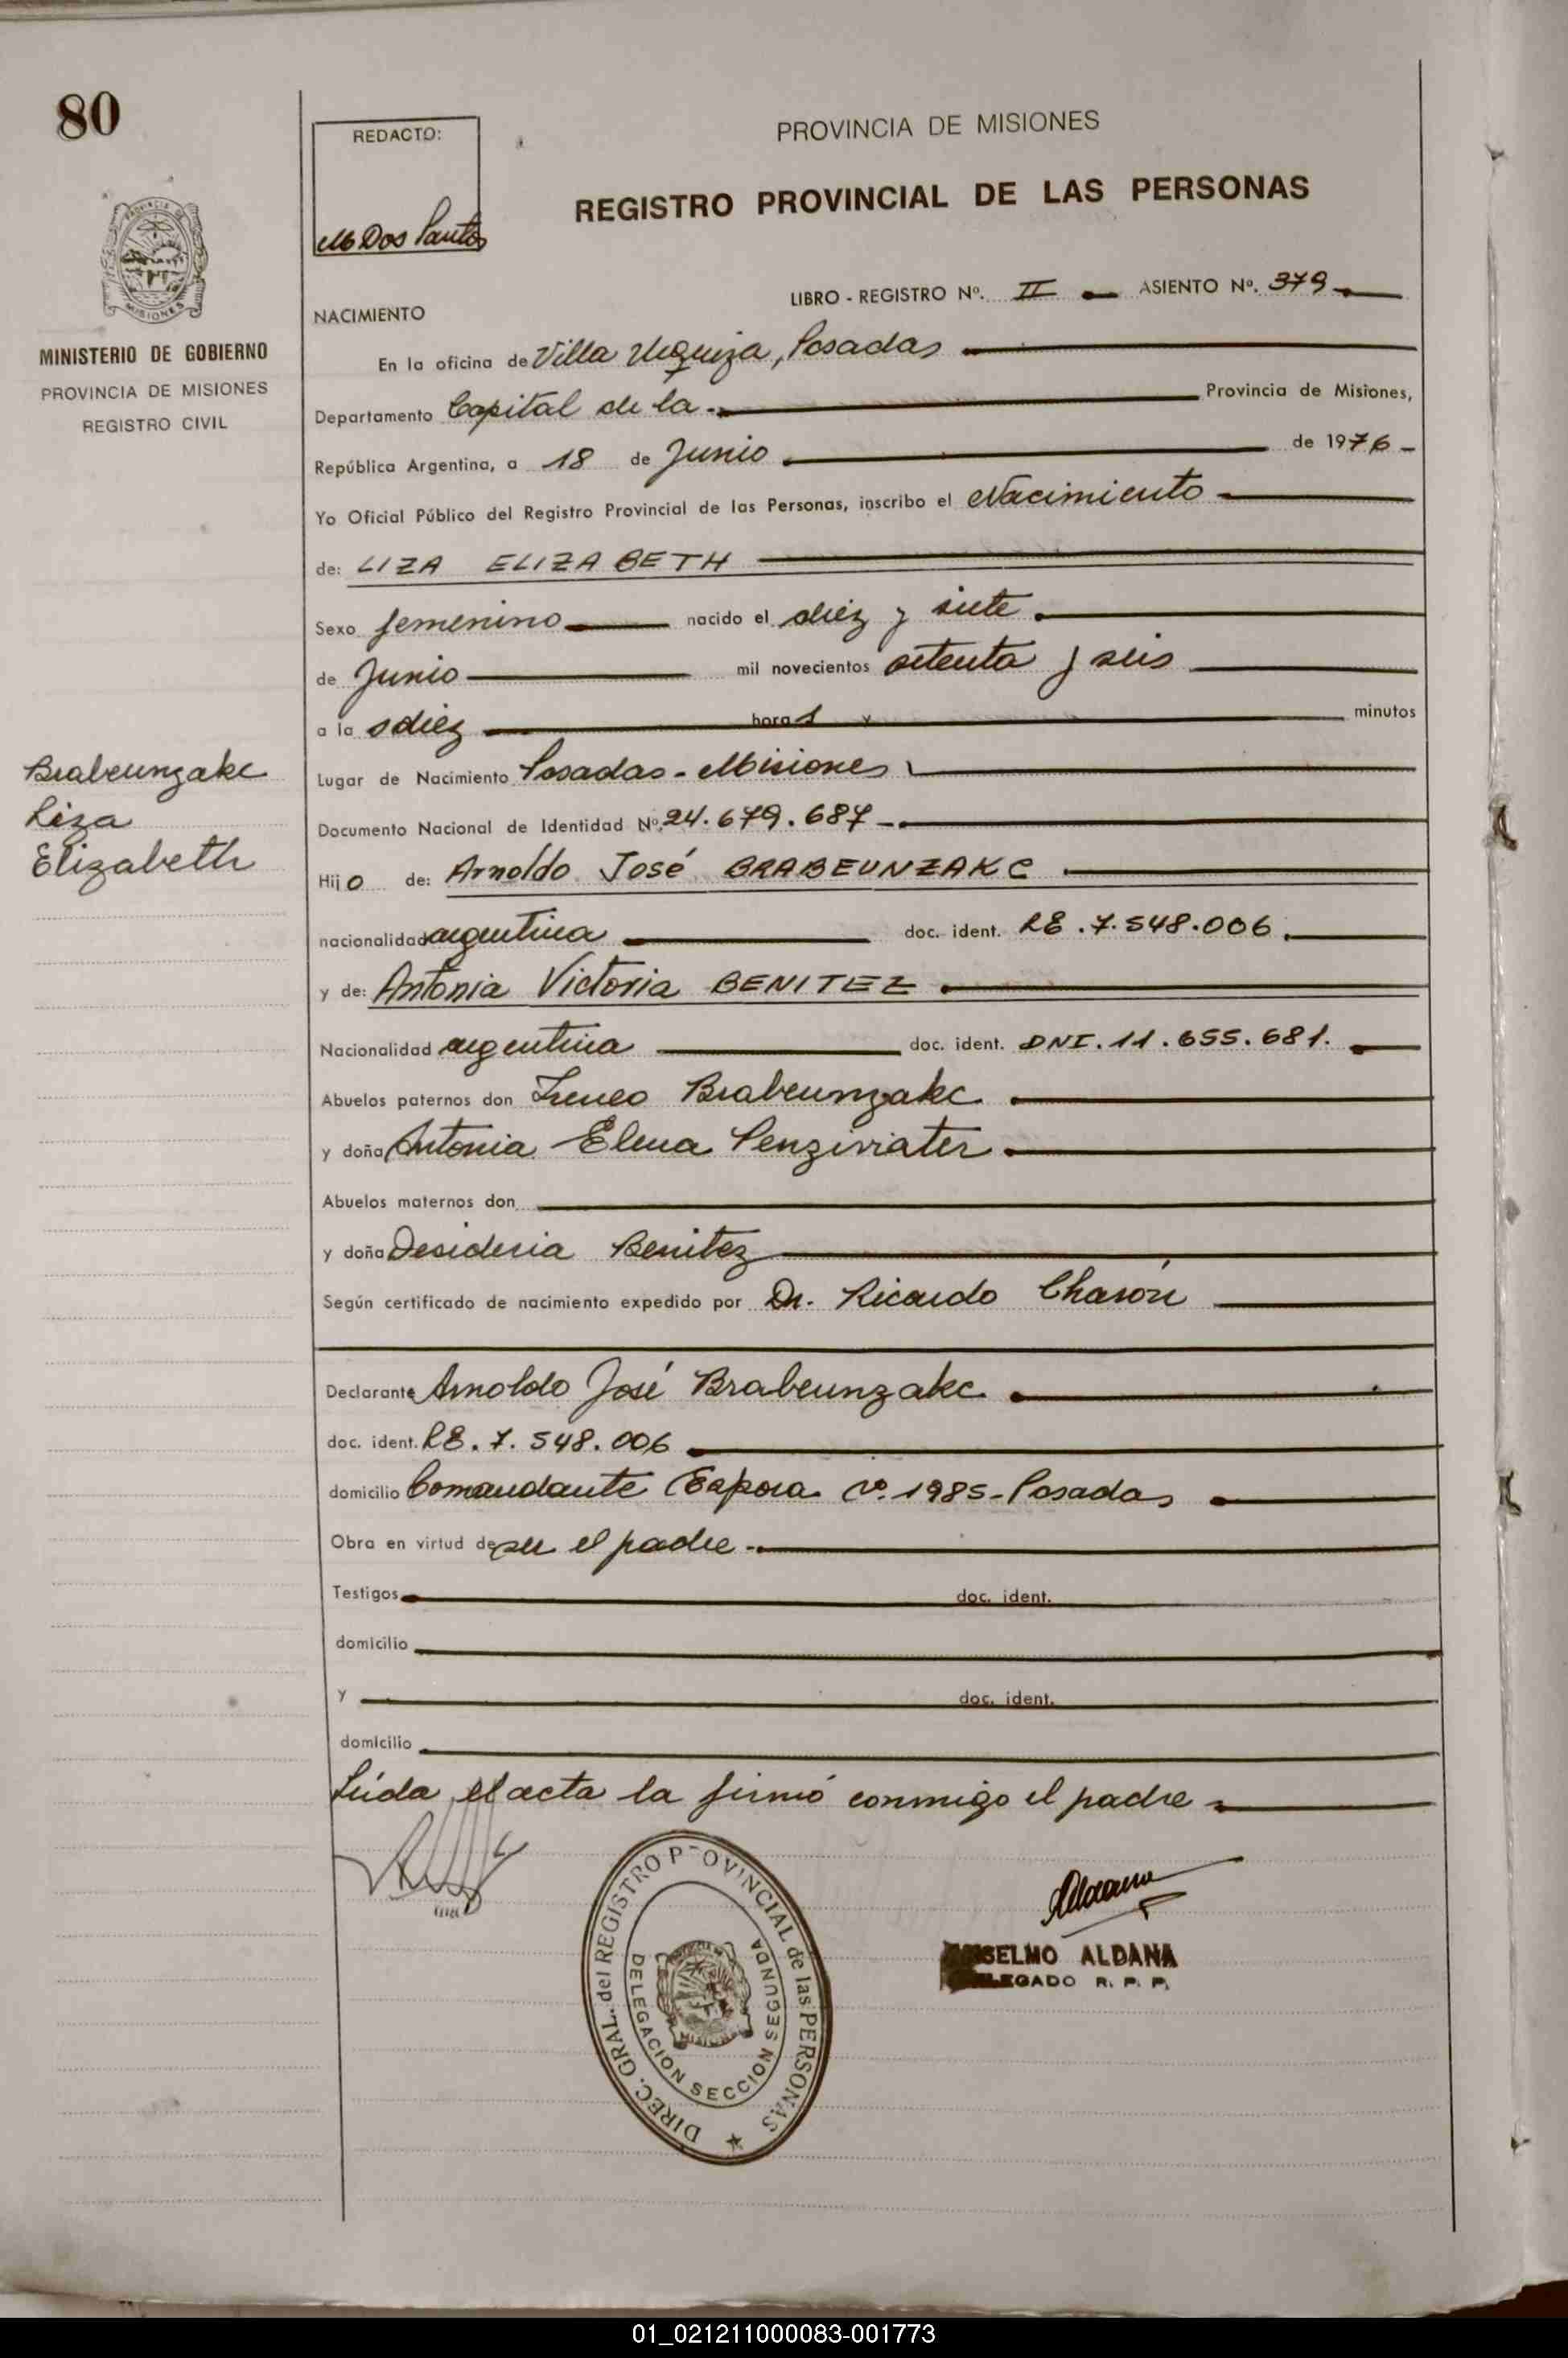 80
REDACTO:
M Dos Santos
PROVINCIA DE MISIONES
REGISTRO PROVINCIAL DE LAS PERSONAS
PROVINCIA DE
MISIONES
MINISTERIO DE GOBIERNO
PROVINCIA DE MISIONES
REGISTRO CIVIL
LIBRO - REGISTRO Nº. II ASIENTO Nº. 379
NACIMIENTO
En la oficina de Villa Urquiza, Posadas
Departamento Capital de la Provincia de Misiones,
República Argentina, a 18 de Junio de 1976
Yo Oficial Público del Registro Provincial de las Personas, inscribo el Nacimiento
de: LIZA ELIZABETH
Sexo femenino nacido el diez y siete
de Junio mil novecientos setenta y seis
a la s diez hora s y minutos
Brabeunzakc
Liza
Elizabeth
Lugar de Nacimiento Posadas - Misiones
Documento Nacional de Identidad Nº. 24.679.687
Hijo de: Arnoldo José BRABEUNZAKC
nacionalidad argentina doc. ident. LE.7.548.006.
y de: Antonia Victoria BENITEZ
Nacionalidad argentina doc. ident. DNI.11.655.681.
Abuelos paternos don Ireneo Brabeunzakc
y doña Antonia Elena
Abuelos maternos don
y doña Desideria Benitez
Según certificado de nacimiento expedido por Dr. Ricardo
Declarante Arnoldo José Brabeunzakc
doc. ident. LE.7.548.006
domicilio Comandante Espora Nº. 1985 - Posadas
Obra en virtud de ser el padre
Testigos doc. ident.
domicilio
y doc. ident.
domicilio
Leída el acta la firmó conmigo el padre
DIREC. GRAL. del REGISTRO PROVINCIAL de las PERSONAS
DELEGACION SECCION SEGUNDA
ANSELMO ALDANA
DELEGADO R. P. P.
01_021211000083-001773